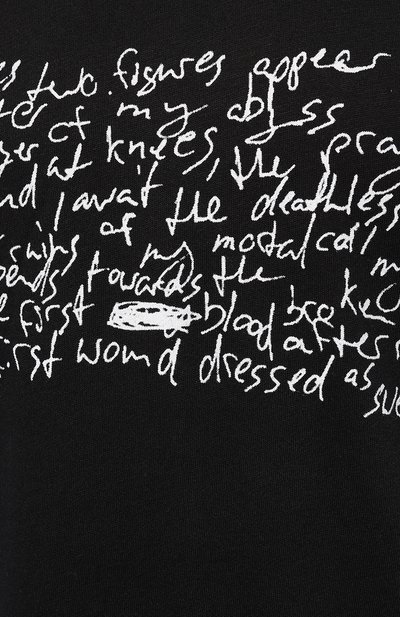 es two figures appear
of my abyss
at knees, the pra
nd await the deathless
of my mortal coil
towards the
first blood
first wound dressed as